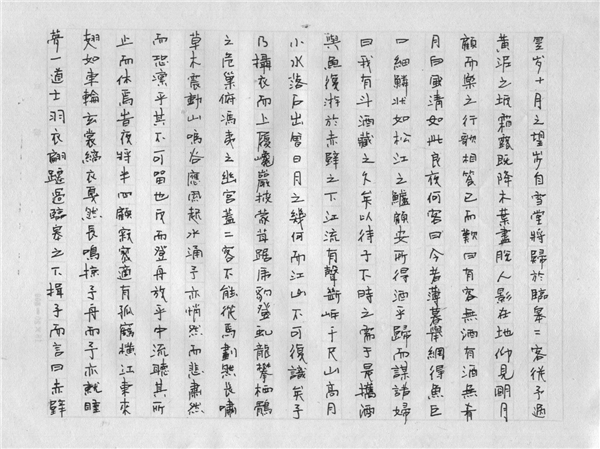 是歲十月之望步自雪堂將歸於臨皋二客從予過
黃泥之坂霜露既降木葉盡脫人影在地仰見明月
顧而樂之行歌相答已而歎曰有客無酒有酒無肴
月白風清如此良夜何客曰今者薄暮舉網得魚巨
口細鱗狀如松江之鱸顧安所得酒乎歸而謀諸婦
曰我有斗酒藏之久矣以待子不時之需于是攜酒
與魚復游於赤壁之下江流有聲斷岸千尺山高月
小水落石出曾日月之幾何而江山不可復識矣予
乃攝衣而上履巉巖披蒙茸踞虎豹登虬龍攀栖鶻
之危巢俯馮夷之幽宮蓋二客不能從焉劃然長嘯
草木震動山鳴谷應風起水涌予亦悄然而悲肅然
而恐凜乎其不可留也反而登舟放乎中流聽其所
止而休焉時夜將半四顧寂寥適有孤鶴橫江東來
翅如車輪玄裳縞衣戛然長鳴掠予舟而予亦就睡
夢一道士羽衣翩躚過臨皋之下揖予而言曰赤壁